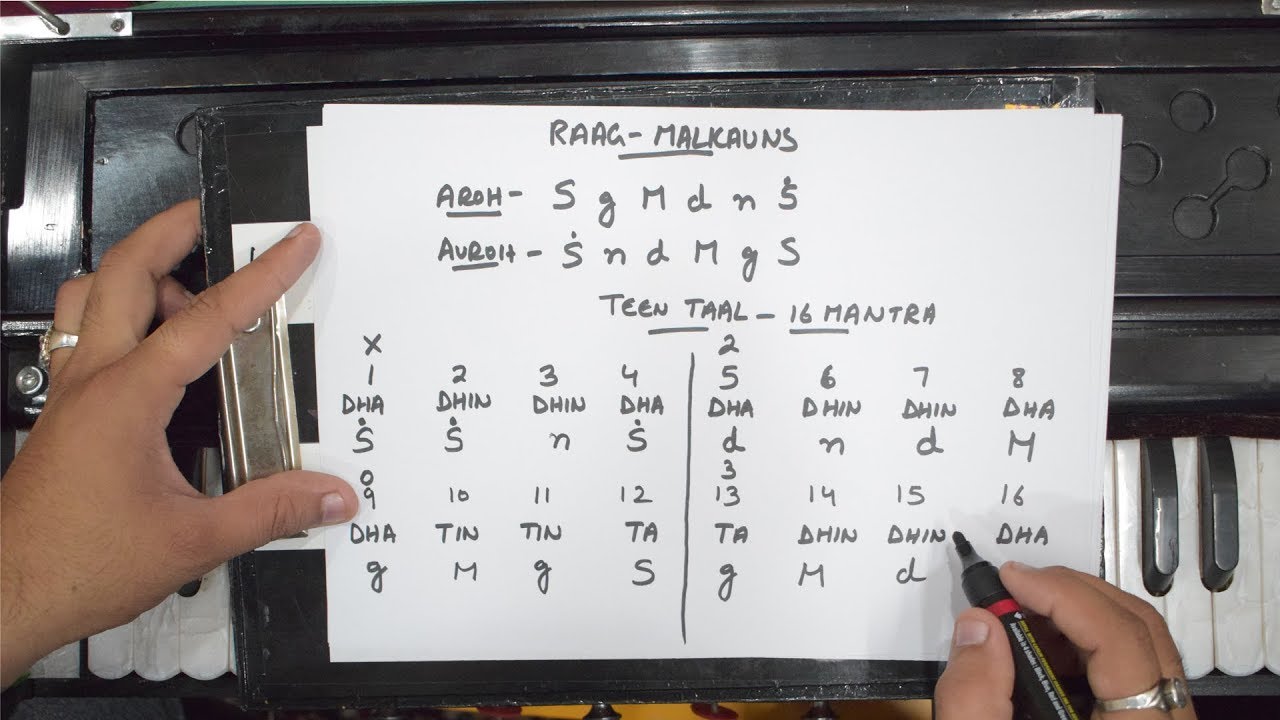 RAAG - MALKAUNS
AROH - S g M d n Ṡ
AUROH - Ṡ n d M g S
TEEN TAAL - 16 MANTRA
X 2
1 2 3 4 5 6 7 8
DHA DHIN DHIN DHA DHA DHIN DHIN DHA
Ṡ Ṡ n Ṡ d n d M
0 3
9 10 11 12 13 14 15 16
DHA TIN TIN TA TA DHIN DHIN DHA
g M g S g M d